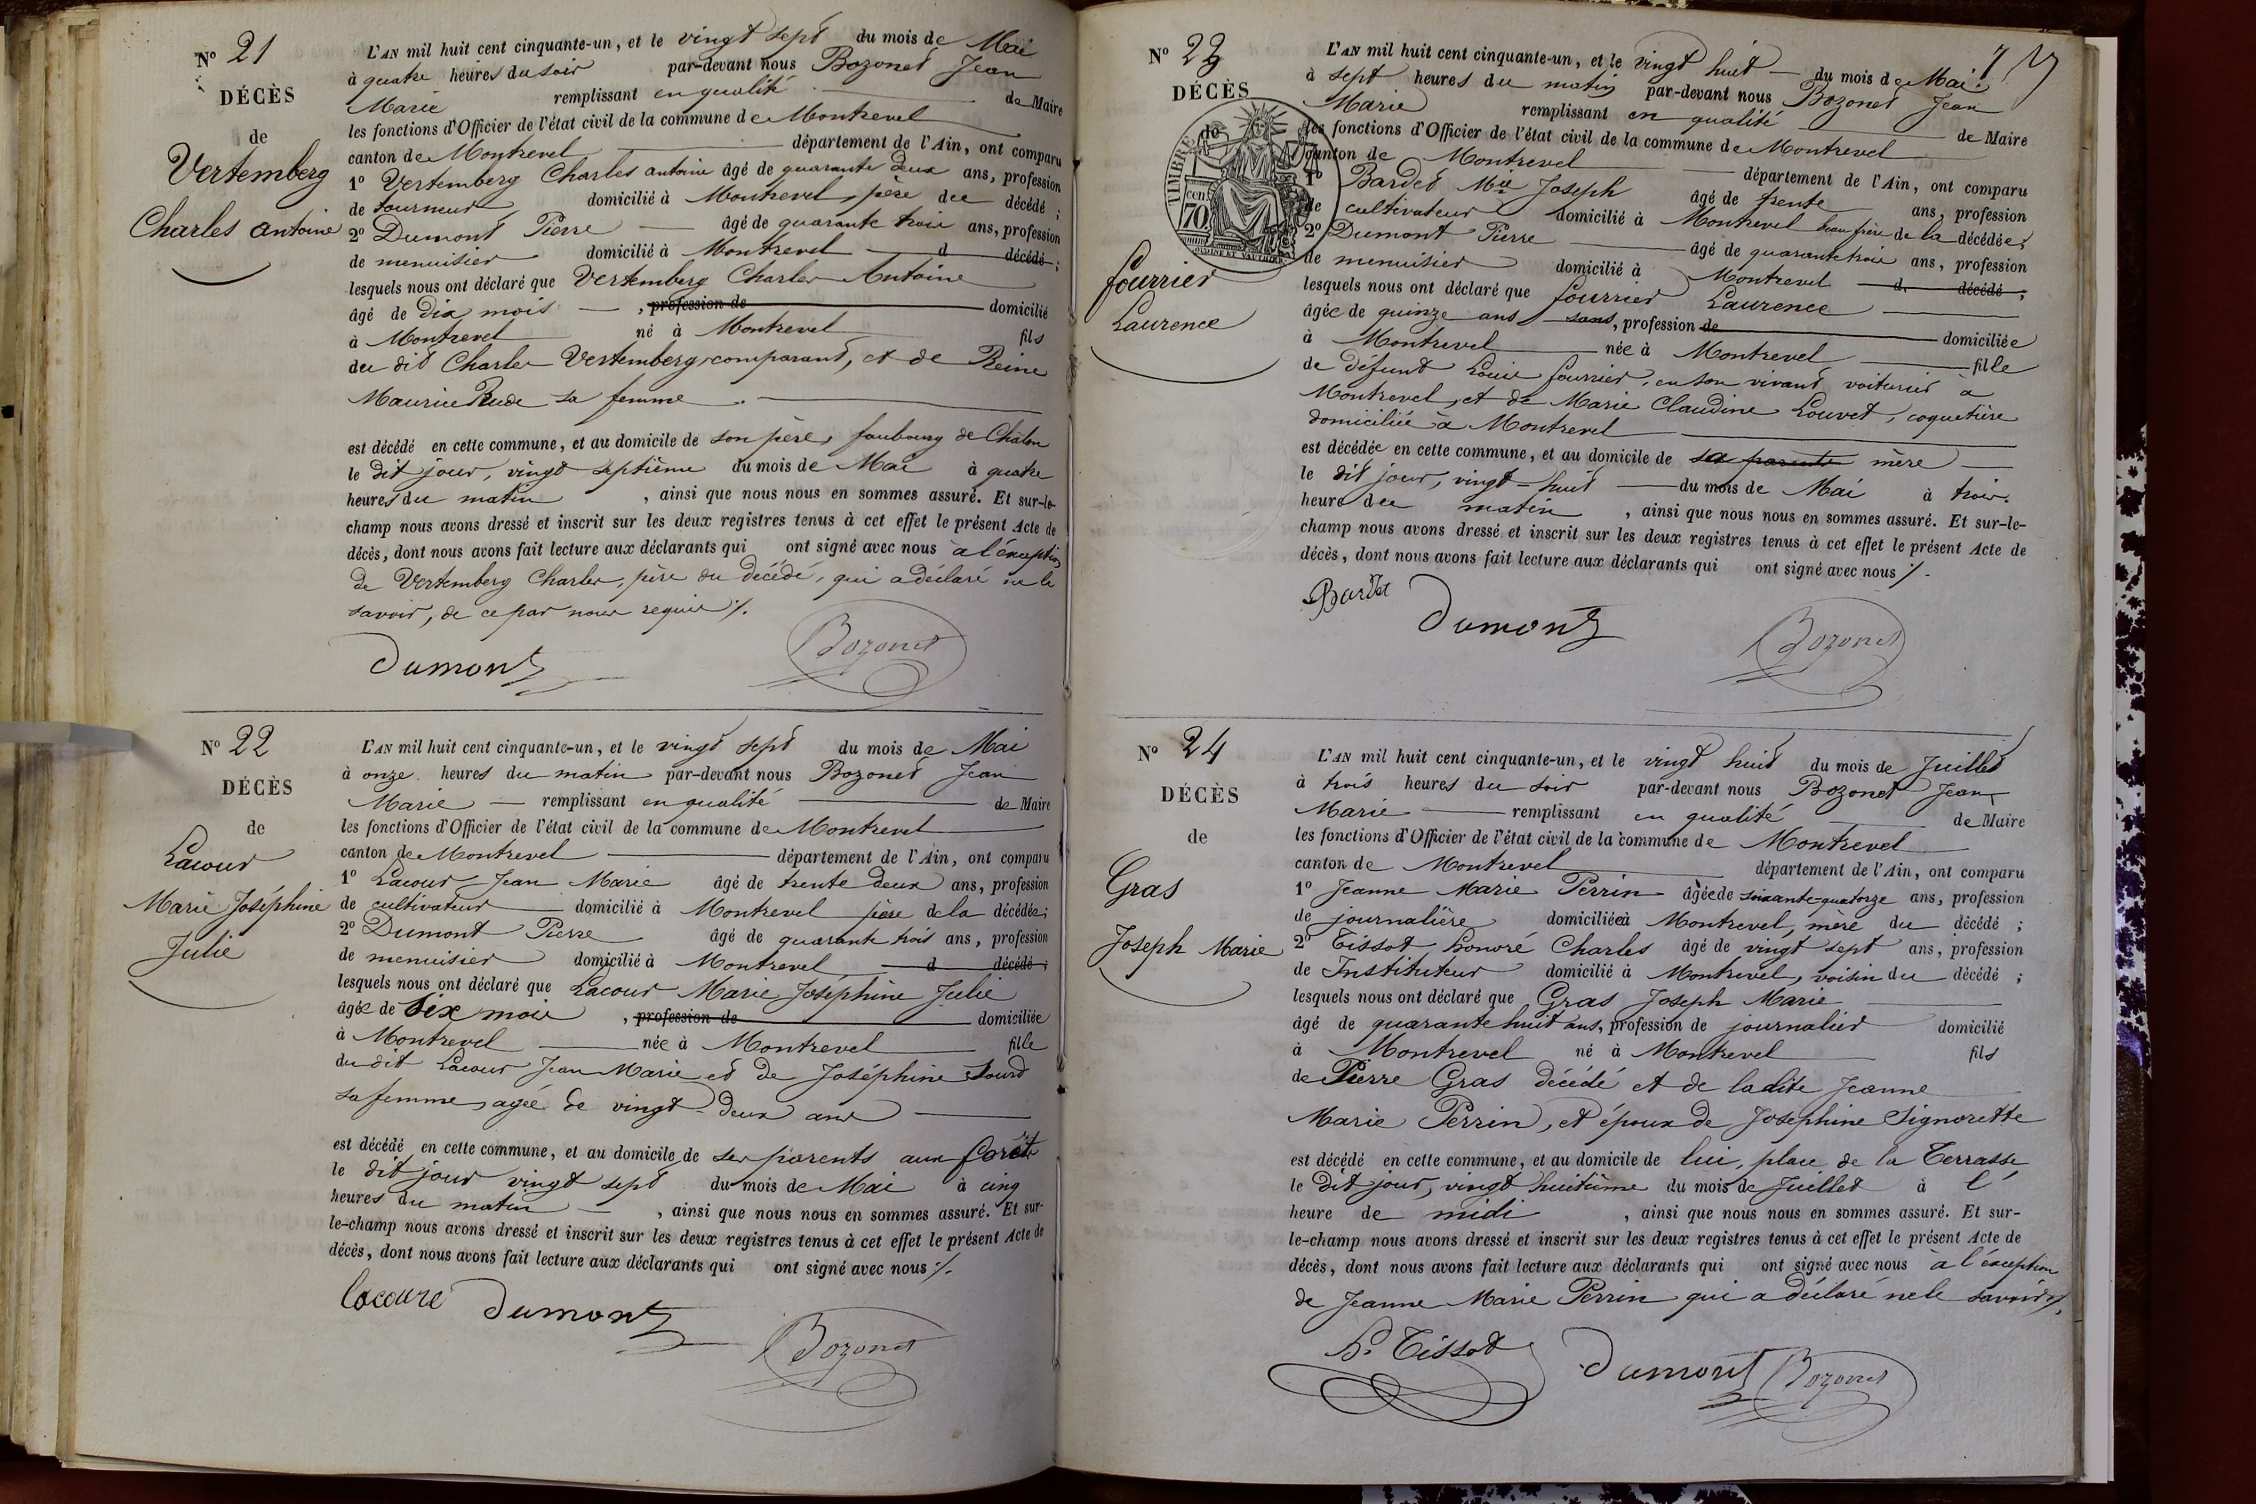 N° 21
DÉCÈS
de
Vertemberg
Charles Antoine
L'AN mil huit cent cinquante-un, et le vingt sept du mois de Mai
à quatre heures du soir par-devant nous Bozonet Jean
Marie remplissant en qualité de Maire
les fonctions d'Officier de l'état civil de la commune de Montrevel
canton de Montrevel département de l'Ain, ont comparu
1° Vertemberg Charles antoine âgé de quarante deux ans, profession
de tourneur domicilié à Montrevel, père du décédé ;
2° Dumont Pierre âgé de quarante trois ans, profession
de menuisier domicilié à Montrevel d décédé ;
lesquels nous ont déclaré que Vertemberg Charles Antoine
âgé de dix mois , profession de domicilié
à Montrevel né à Montrevel fils
du dit Charles Vertemberg, comparant, et de Reine
Maurice Rude sa femme .
est décédé en cette commune, et au domicile de son père, faubourg de Châlon
le dit jour, vingt septième du mois de Mai à quatre
heures du matin , ainsi que nous nous en sommes assuré. Et sur-le-
champ nous avons dressé et inscrit sur les deux registres tenus à cet effet le présent Acte de
décès, dont nous avons fait lecture aux déclarants qui ont signé avec nous à l'exception
de Vertemberg Charles, père du décédé, qui a déclaré ne le
savoir, de ce par nous requis ./.
Dumont Bozonet
N° 22
DÉCÈS
de
Lacour
Marie Joséphine
Julie
L'AN mil huit cent cinquante-un, et le vingt sept du mois de Mai
à onze heures du matin par-devant nous Bozonet Jean
Marie remplissant en qualité de Maire
les fonctions d'Officier de l'état civil de la commune de Montrevel
canton de Montrevel département de l'Ain, ont comparu
1° Lacour Jean Marie âgé de trente deux ans, profession
de cultivateur domicilié à Montrevel père de la décédée ;
2° Dumont Pierre âgé de quarante trois ans, profession
de menuisier domicilié à Montrevel d décédé ;
lesquels nous ont déclaré que Lacour Marie Joséphine Julie
âgée de Six mois , profession de domiciliée
à Montrevel née à Montrevel fille
du dit Lacour Jean Marie et de Joséphine Sourd
sa femme, agée de vingt-deux ans
est décédé en cette commune, et au domicile de ses parents aux forêts
le dit jour vingt sept du mois de Mai à cinq
heures du matin , ainsi que nous nous en sommes assuré. Et sur-
le-champ nous avons dressé et inscrit sur les deux registres tenus à cet effet le présent Acte de
décès, dont nous avons fait lecture aux déclarants qui ont signé avec nous ./.
Lacoure Dumont
Bozonet
N° 23
DÉCÈS
de
TIMBRE
70
cen
fourrier
Laurence
L'AN mil huit cent cinquante-un, et le vingt huit du mois de Mai.
à sept heures du matin par-devant nous Bozonet Jean
Marie remplissant en qualité de Maire
les fonctions d'Officier de l'état civil de la commune de Montrevel
canton de Montrevel département de l'Ain, ont comparu
1° Bardet Mie Joseph âgé de trente ans, profession
de cultivateur domicilié à Montrevel beau frère de la décédée ;
2° Dumont Pierre âgé de quarante trois ans, profession
de menuisier domicilié à Montrevel d décédé ;
lesquels nous ont déclaré que fourrier Laurence
âgée de quinze ans sans, profession de domiciliée
à Montrevel née à Montrevel fille
de défunt Louis fourrier, en son vivant voiturier à
Montrevel, et de Marie Claudine Louvet, coquetière
domiciliée à Montrevel
est décédée en cette commune, et au domicile de sa parente mère
le dit jour, vingt-huit du mois de Mai à trois
heure du matin , ainsi que nous nous en sommes assuré. Et sur-le-
champ nous avons dressé et inscrit sur les deux registres tenus à cet effet le présent Acte de
décès, dont nous avons fait lecture aux déclarants qui ont signé avec nous ./.
Bardet Dumont Bozonet
N° 24
DÉCÈS
de
Gras
Joseph Marie
L'AN mil huit cent cinquante-un, et le vingt huit du mois de Juillet
à trois heures du soir par-devant nous Bozonet Jean
Marie remplissant en qualité de Maire
les fonctions d'Officier de l'état civil de la commune de Montrevel
canton de Montrevel département de l'Ain, ont comparu
1° Jeanne Marie Perrin âgée de soixante-quatorze ans, profession
de journalière domiciliée à Montrevel, mère du décédé ;
2° Tissot honoré Charles âgé de vingt sept ans, profession
de Instituteur domicilié à Montrevel, voisin du décédé ;
lesquels nous ont déclaré que Gras Joseph Marie
âgé de quarante huit ans, profession de journalier domicilié
à Montrevel né à Montrevel fils
de Pierre Gras décédé et de ladite Jeanne
Marie Perrin, et époux de Josephine Signorette
est décédé en cette commune, et au domicile de lui, place de la Terrasse
le dit jour, vingt huitième du mois de Juillet à l'
heure de midi , ainsi que nous nous en sommes assuré. Et sur-
le-champ nous avons dressé et inscrit sur les deux registres tenus à cet effet le présent Acte de
décès, dont nous avons fait lecture aux déclarants qui ont signé avec nous à l'exception
de Jeanne Marie Perrin qui a déclaré ne le savoir ./.
h. Tissot Dumont Bozonet